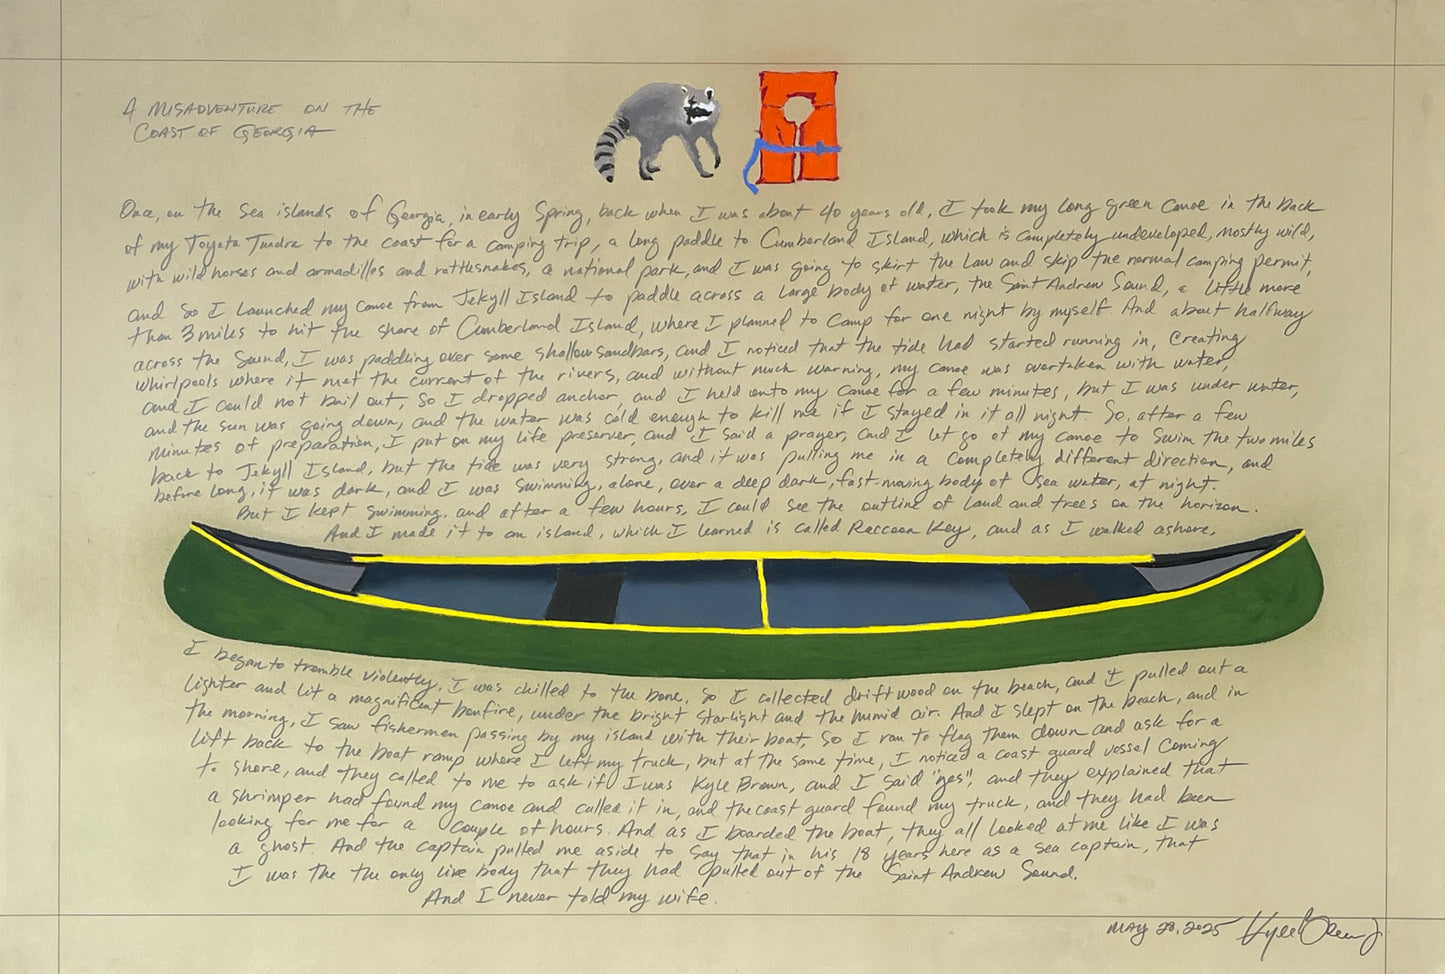 A MISADVENTURE ON THE
COAST OF GEORGIA
Once, on the sea islands of Georgia, in early Spring, back when I was about 40 years old, I took my long green canoe in the back
of my Toyota Tundra to the coast for a camping trip, a long paddle to Cumberland Island, which is completely undeveloped, mostly wild,
with wild horses and armadillos and rattlesnakes, a national park, and I was going to skirt the law and skip the normal camping permit,
and so I launched my canoe from Jekyll Island to paddle across a large body of water, the Saint Andrew Sound, a little more
than 3 miles to hit the shore of Cumberland Island, where I planned to camp for one night by myself. And about halfway
across the Sound, I was paddling over some shallow sandbars, and I noticed that the tide had started running in, creating
whirlpools where it met the current of the rivers, and without much warning, my canoe was overtaken with water,
and I could not bail out, so I dropped anchor, and I held onto my canoe for a few minutes, but I was under water,
and the sun was going down, and the water was cold enough to kill me if I stayed in it all night. So, after a few
minutes of preparation, I put on my life preserver, and I said a prayer, and I let go of my canoe to swim the two miles
back to Jekyll Island, but the tide was very strong, and it was pulling me in a completely different direction, and
before long, it was dark, and I was swimming, alone, over a deep dark, fast-moving body of sea water, at night.
But I kept swimming, and after a few hours, I could see the outline of land and trees on the horizon.
And I made it to an island, which I learned is called Raccoon Key, and as I walked ashore,
I began to tremble violently, I was chilled to the bone, so I collected driftwood on the beach, and I pulled out a
lighter and lit a magnificent bonfire, under the bright starlight and the humid air. And I slept on the beach, and in
the morning, I saw fishermen passing by my island with their boat, so I ran to flag them down and ask for a
lift back to the boat ramp where I left my truck, but at the same time, I noticed a coast guard vessel coming
to shore, and they called to me to ask if I was Kyle Brown, and I said "yes", and they explained that
a shrimper had found my canoe and called it in, and the coast guard found my truck, and they had been
looking for me for a couple of hours. And as I boarded the boat, they all looked at me like I was
a ghost. And the captain pulled me aside to say that in his 18 years here as a sea captain, that
I was the the only live body that they had pulled out of the Saint Andrew Sound.
And I never told my wife.
MAY 28, 2025 Kyle Brown